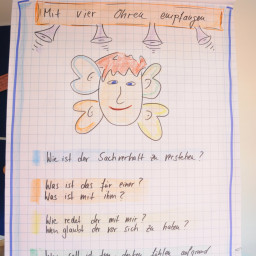 Mit vier Ohren empfangen
Wie ist der Sachverhalt zu verstehen?
Was ist das für einer?
Was ist mit ihm?
Wie redet der mit mir?
Wen glaubt der vor sich zu haben?
Was soll ich denken fühlen aufgrund